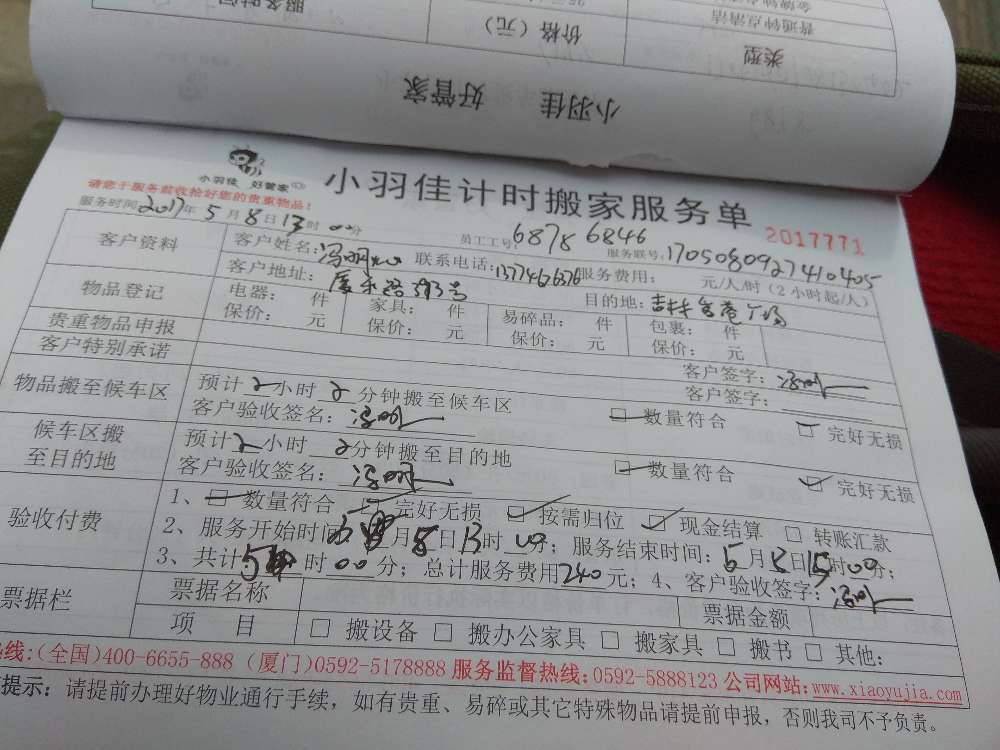 服务时间
金牌钟点
普通钟点清洁
价格（元）
类型
小羽佳 好管家
小羽佳 好管家
小羽佳计时搬家服务单
请您于服务前收拾好您的贵重物品！
2017771
服务时间2017年5月8日13时00分
员工工号6878 6846
服务联号:1705080927410405
客户资料
客户姓名:冯明 联系电话:13774676376 服务费用: 元/人/时（2小时起/人）
客户地址: 593号 目的地:
物品登记
电器: 件 家具: 件 易碎品: 件 包裹: 件
保价: 元 保价: 元 保价: 元 保价: 元
贵重物品申报
客户签字:冯明
客户特别承诺
客户签字:
物品搬至候车区
预计2小时2分钟搬至候车区
客户验收签名:冯明 数量符合 完好无损
候车区搬
至目的地
预计2小时2分钟搬至目的地
客户验收签名:冯明 数量符合 完好无损
验收付费
1、数量符合 完好无损 按需归位 现金结算 转账汇款
2、服务开始时间 月8日13时00分; 服务结束时间: 5月8日15时00分;
3、共计 时00分; 总计服务费用240元; 4、客户验收签字:冯明
票据栏
票据名称 票据金额
项 目 搬设备 搬办公家具 搬家具 搬书 其他:
线:(全国)400-6655-888 (厦门)0592-5178888 服务监督热线:0592-5888123 公司网站:www.xiaoyujia.com
提示: 请提前办理好物业通行手续, 如有贵重、易碎或其它特殊物品请提前申报, 否则我司不予负责。